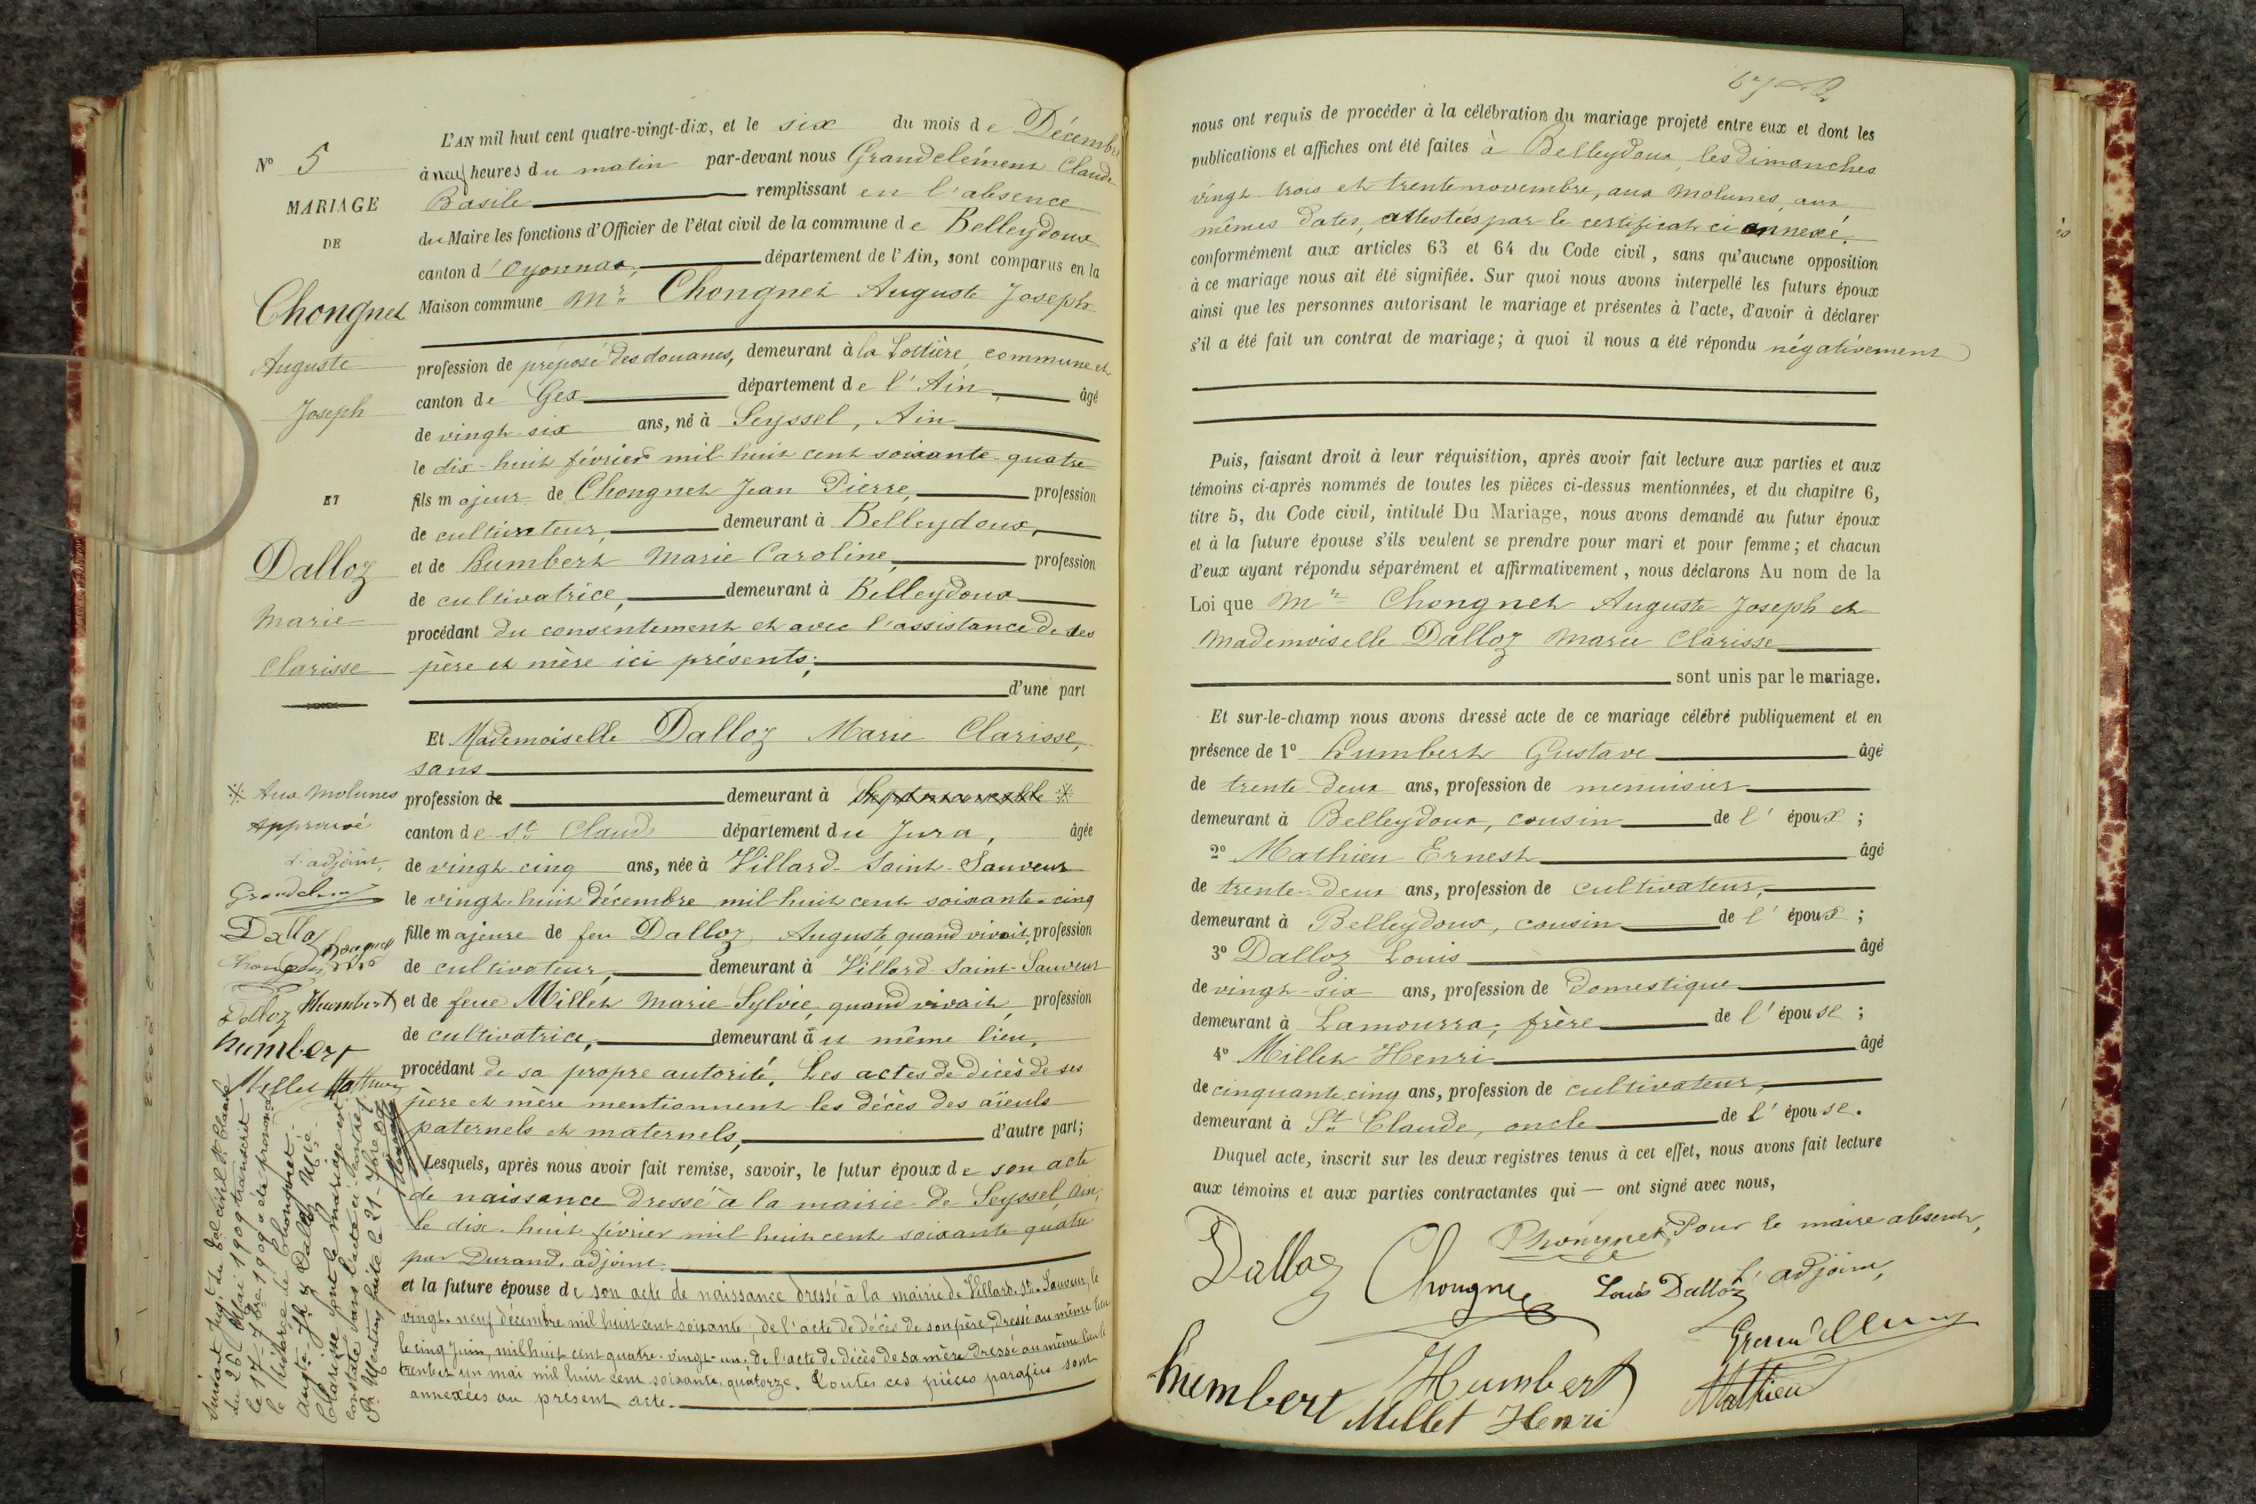 N° 5
MARIAGE
DE
Chongnet
Auguste
Joseph
ET
Dalloz
Marie
Clarisse
※ Aux Molunes
Approuvé
L'adjoint,
Dalloz
Dalloz Humbert
humbert
Millet Mathieu
Suivant jug.t du
du 26 Mai 1909 transcrit
le 17 1909 a été prononcé
le divorce de Chongnet
Auguste J.h & Dalloz Mie
Clarisse dont le mariage est
constaté dans l'acte ci-contre
Pr Mention faite le 21 7bre 09
L'AN mil huit cent quatre-vingt-dix, et le six du mois de Décembre
à neuf heures du matin par-devant nous Grandclément Claude
Basile remplissant en l'absence
du Maire les fonctions d'Officier de l'état civil de la commune de Belleydoux
canton d'Oyonnax, département de l'Ain, sont comparus en la
Maison commune Mr Chongnet Auguste Joseph
profession de préposé des douanes, demeurant à la commune et
canton de Gex département de l'Ain, âgé
de vingt-six ans, né à Seyssel, Ain
le dix-huit février mil huit cent soixante-quatre
fils majeur de Chongnet Jean Pierre, profession
de cultivateur, demeurant à Belleydoux,
et de Humbert Marie Caroline, profession
de cultivatrice, demeurant à Belleydoux
procédant du consentement et avec l'assistance de ses
père et mère ici présents;
d'une part
Et Mademoiselle Dalloz Marie Clarisse,
sans
profession de demeurant à ※
canton de St Claude département du Jura, âgée
de vingt-cinq ans, née à Villard-Saint-Sauveur
le vingt-huit décembre mil huit cent soixante-cinq
fille majeure de feu Dalloz Auguste, quand vivait, profession
de cultivateur, demeurant à Villard-Saint-Sauveur
et de feue Millet Marie-Sylvie, quand vivait, profession
de cultivatrice, demeurant au même lieu,
procédant de sa propre autorité. Les actes de décès de ses
père et mère mentionnent les décès des aïeuls
paternels et maternels, d'autre part;
Lesquels, après nous avoir fait remise, savoir, le futur époux de son acte
de naissance dressé à la mairie de Seyssel, Ain,
le dix-huit février mil huit cent soixante quatre
par Durand, adjoint.
et la future épouse de son acte de naissance dressé à la mairie de Villard-St-Sauveur, le
vingt-neuf décembre mil huit cent soixante; de l'acte de décès de son père, dressé au même lieu
le cinq juin, mil huit cent quatre-vingt-un; de l'acte de décès de sa mère dressé au même lieu le
trente et un mai mil huit cent soixante-quatorze. Toutes ces pièces parafées sont
annexées au présent acte.
nous ont requis de procéder à la célébration du mariage projeté entre eux et dont les
publications et affiches ont été faites à Belleydoux, les dimanches
vingt-trois et trente novembre, aux Molunes, aux
mêmes dates, attestées par le certificat ci annexé,
conformément aux articles 63 et 64 du Code civil, sans qu'aucune opposition
à ce mariage nous ait été signifiée. Sur quoi nous avons interpellé les futurs époux
ainsi que les personnes autorisant le mariage et présentes à l'acte, d'avoir à déclarer
s'il a été fait un contrat de mariage; à quoi il nous a été répondu négativement
Puis, faisant droit à leur réquisition, après avoir fait lecture aux parties et aux
témoins ci-après nommés de toutes les pièces ci-dessus mentionnées, et du chapitre 6,
titre 5, du Code civil, intitulé Du Mariage, nous avons demandé au futur époux
et à la future épouse s'ils veulent se prendre pour mari et pour femme; et chacun
d'eux ayant répondu séparément et affirmativement, nous déclarons Au nom de la
Loi que Mr Chongnet Auguste Joseph et
Mademoiselle Dalloz Marie Clarisse
sont unis par le mariage.
Et sur-le-champ nous avons dressé acte de ce mariage célébré publiquement et en
présence de 1° Humbert Gustave âgé
de trente-deux ans, profession de menuisier
demeurant à Belleydoux, cousin de l'époux;
2° Mathieu Ernest âgé
de trente-deux ans, profession de cultivateur,
demeurant à Belleydoux, cousin de l'époux;
3° Dalloz Louis âgé
de vingt-six ans, profession de domestique
demeurant à Lamoura, frère de l'épouse;
4° Millet Henri âgé
de cinquante cinq ans, profession de cultivateur,
demeurant à St Claude, oncle de l'épouse.
Duquel acte, inscrit sur les deux registres tenus à cet effet, nous avons fait lecture
aux témoins et aux parties contractantes qui — ont signé avec nous,
Dalloz Chongnet Chongnet Pour le maire absent,
Louis Dalloz l'adjoint,
Grandclément
humbert Humbert Mathieu
Millet Henri